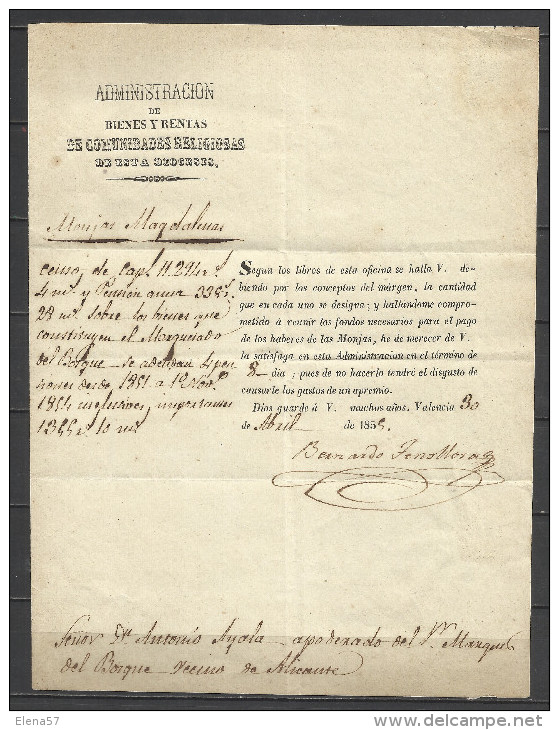 ADMINISTRACION
DE
BIENES Y RENTAS
DE COMUNIDADES RELIGIOSAS
DE ESTA DIOCESIS.
Monjas Magdalenas
censo, de capl. 11.294 rs.
4 ms. y Pension anua 338 rs.
28 ms. sobre los bienes que
constituyen el Marquesado
del Bosque se adeudan 4 pen
siones desde 1851 a 1º Nove.
1854 inclusives, importantes
1355 rs 10 ms
Segun los libros de esta oficina se halla V. de-
biendo por los conceptos del márgen, la cantidad
que en cada uno se designa; y hallándome compro-
metido á reunir los fondos necesarios para el pago
de los haberes de las Monjas, he de merecer de V.
la satisfaga en esta Administracion en el término de
8 dia; pues de no hacerlo tendré el disgusto de
causarle los gastos de un apremio.
Dios guarde á V. muchos años. Valencia 30
de Abril de 1855.
Bernardo Fenollosa
Señor Dn. Antonio Ayala apoderado del Sr. Marques
del Bosque vecino de Alicante
Elena57
www.delcampe.net